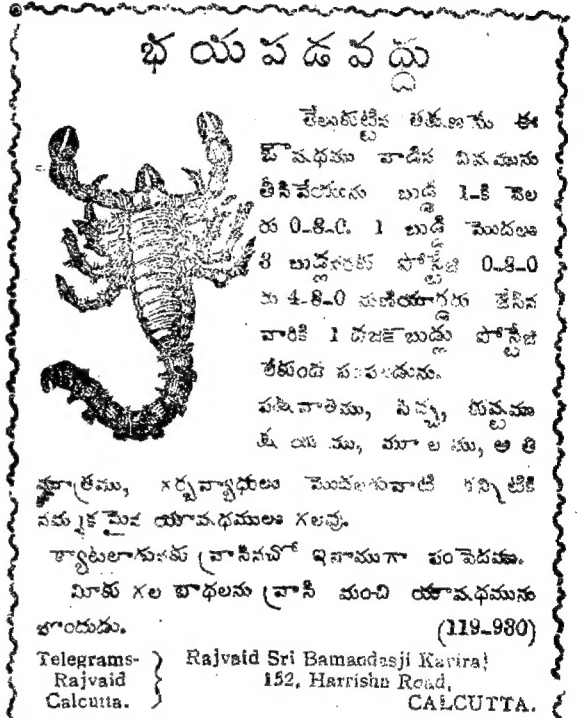 భయపడవద్దు
తేలుకుట్టిన తక్షణమే ఈ
ఔషధము వాడిన విషమును
తీసివేయును బుడ్డి 1-కి వెల
రు 0-8-0. 1 బుడ్డి మొదలు
8 బుడ్లవరకు పోస్టేజి 0-8-0
రు 4-8-0 మణియార్డరు చేసిన
వారికి 1 డజన్ బుడ్లు పోస్టేజి
లేకుండ పంపబడును.
పక్షవాతము, పిచ్చ, కుష్టము
క్షయము, మూలము, అతి
మూత్రము, గర్భవ్యాధులు మొదలగువాటి కన్నిటికి
నమ్మకమైన యౌషధములు గలవు.
క్యాటలాగునకు వ్రాసినచో ఇనాముగా పంపెదము.
మీకు గల బాధలను వ్రాసి మంచి యౌషధమును
పొందుడు.
(119-980)
Telegrams-
Rajvaid
Calcutta.
Rajvaid Sri Bamandasji Kaviraj
152, Harrishn Road,
CALCUTTA.